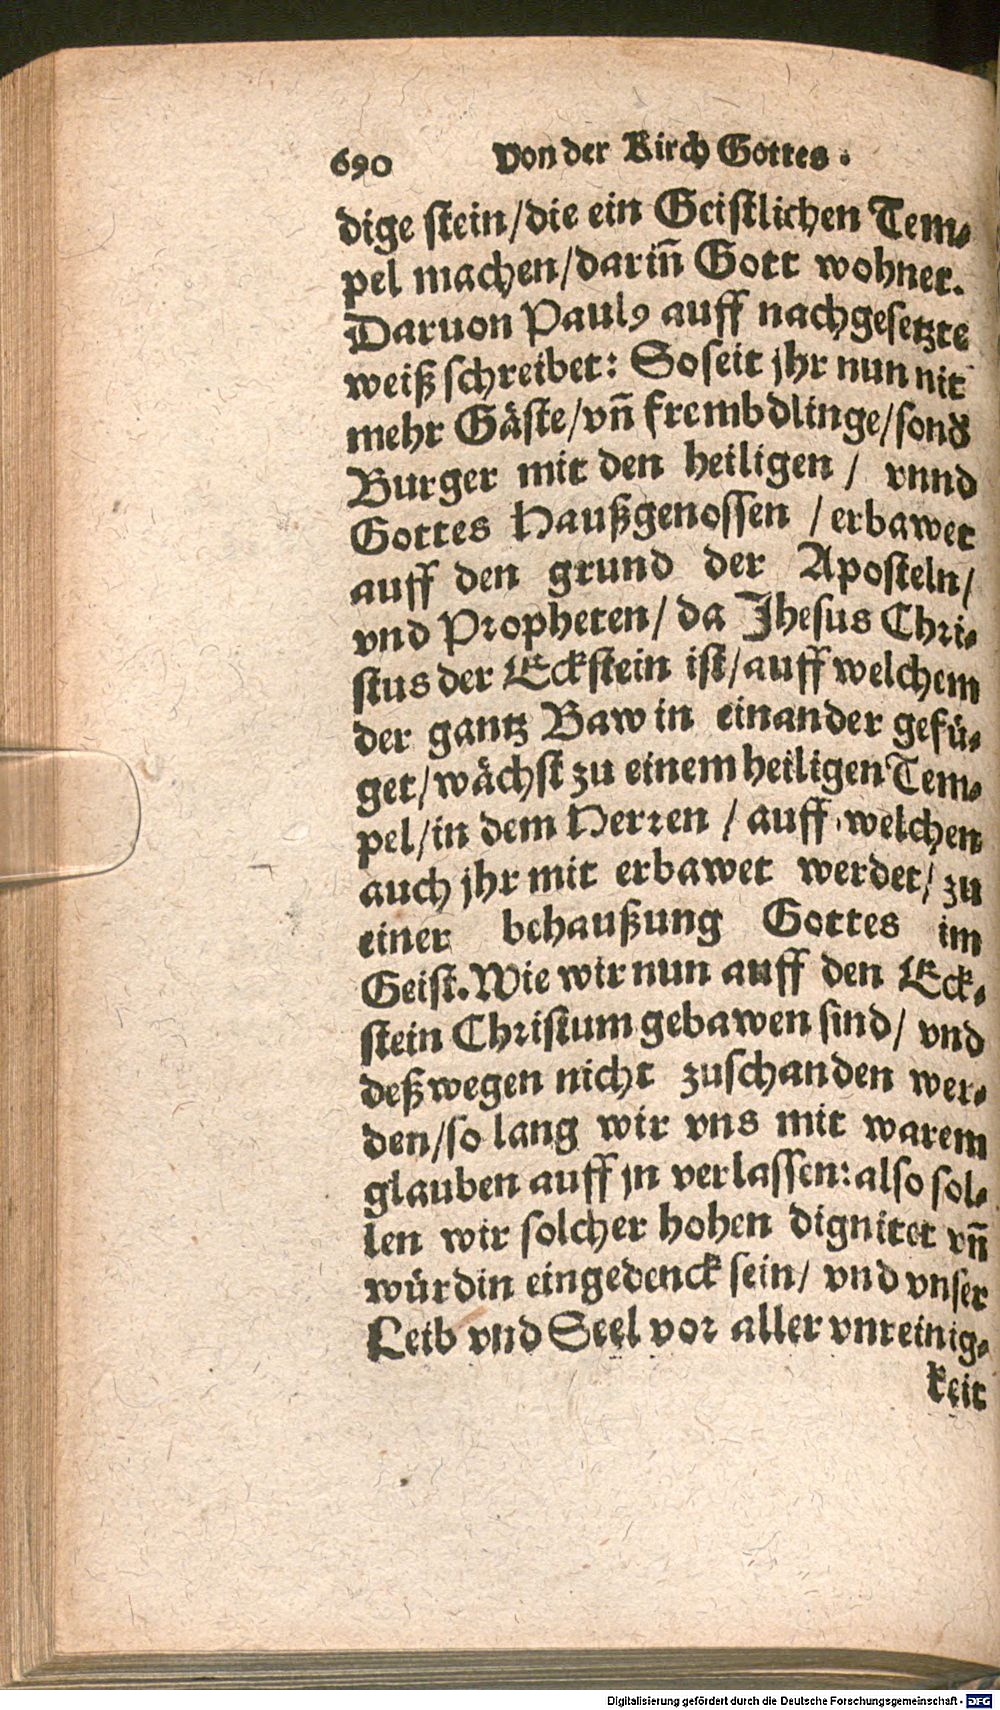 690 Von der Kirch Gottes.
dige stein/die ein Geistlichen Tem⸗
pel machen/dariñ Gott wohnet.
Daruon Paulꝰ auff nachgesetzte
weiß schreibet: So seit jhr nun nit
mehr Gäste/vñ frembdlinge/sond
Burger mit den heiligen / vnnd
Gottes Haußgenossen /erbawet
auff den grund der Aposteln/
vnd Propheten/ da Jhesus Chri⸗
stus der Eckstein ist/auff welchem
der gantz Baw in einander gefü⸗
get/wächst zu einem heiligen Tem⸗
pel/in dem Herren / auff welchen
auch jhr mit erbawet werdet/ zu
einer behaußung Gottes im
Geist. Wie wir nun auff den Eck⸗
stein Christum gebawen sind/ vnd
deßwegen nicht zuschanden wer⸗
den/so lang wir vns mit warem
glauben auff jn verlassen: also sol⸗
len wir solcher hohen dignitet vñ
würdin eingedenck sein/ vnd vnser
Leib vnd Seel vor aller vnreinig⸗
keit
Digitalisierung gefördert durch die Deutsche Forschungsgemeinschaft - DFG